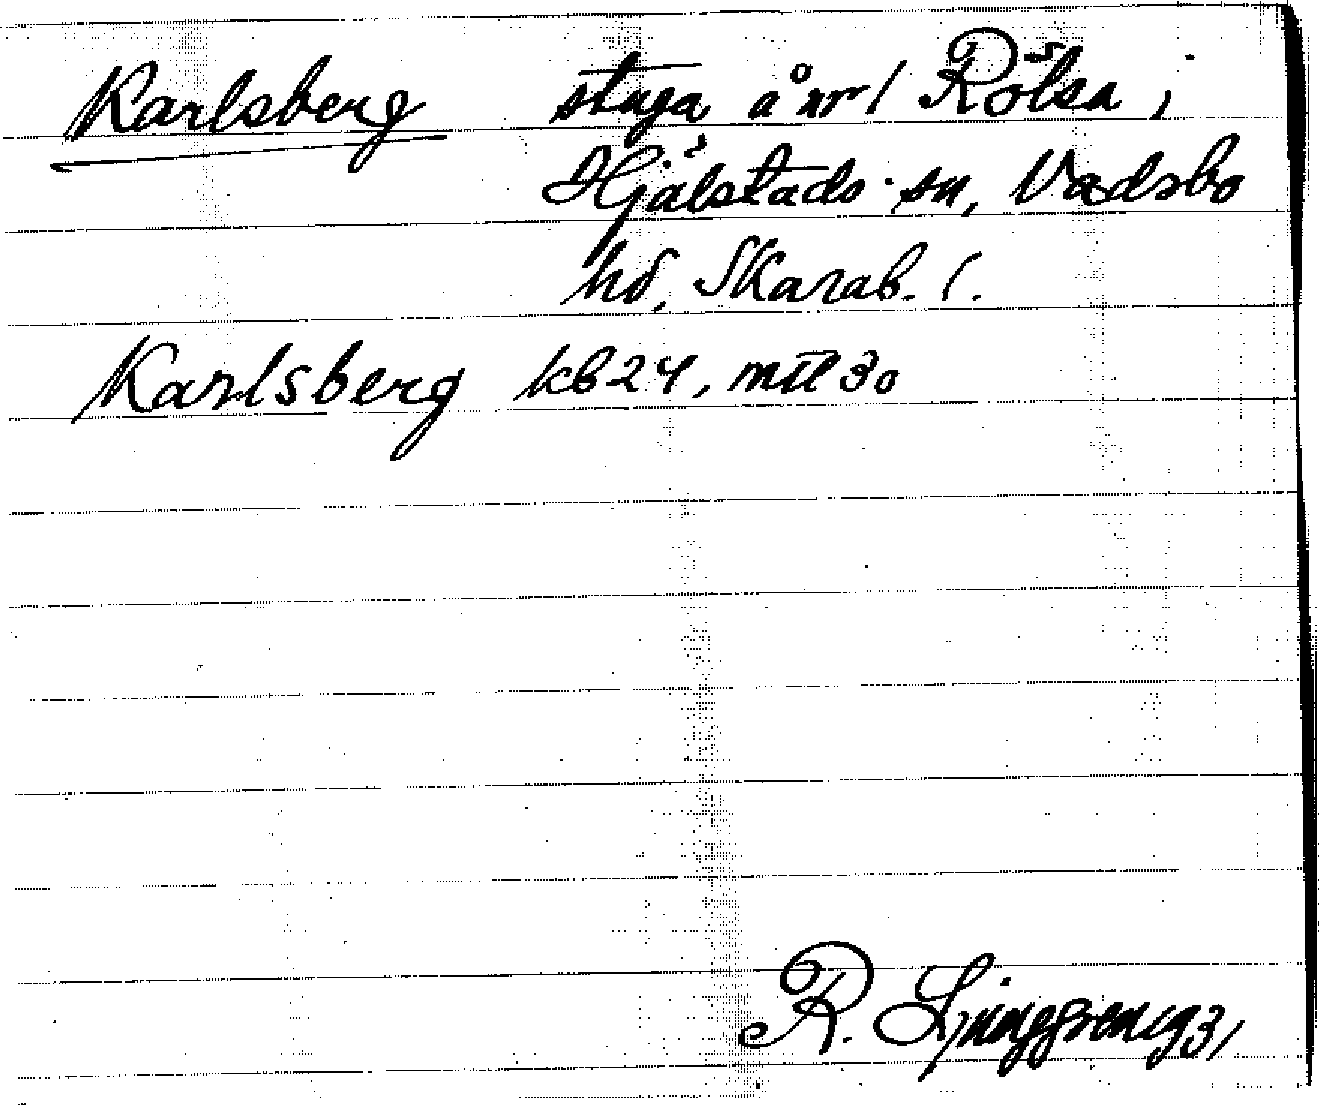 Karlsberg stuga å nr 1 Rölsa i
Hjälstads sn, Vadsbo
hd, Skarab. l.
Karlsberg kb24, mtl 30
R. Ljunggren 1931